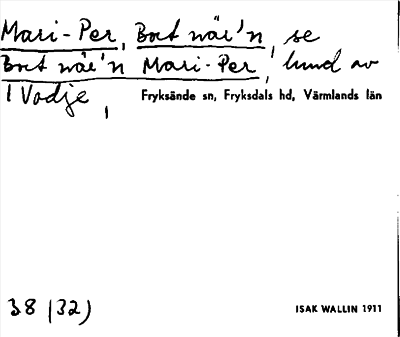 Mari-Per, Bort wäi'n, se
Bort wäi'n Mari-Per, hund av
i Vadje, Fryksände sn, Fryksdals hd, Värmlands län
38 (32) ISAK WALLIN 1911